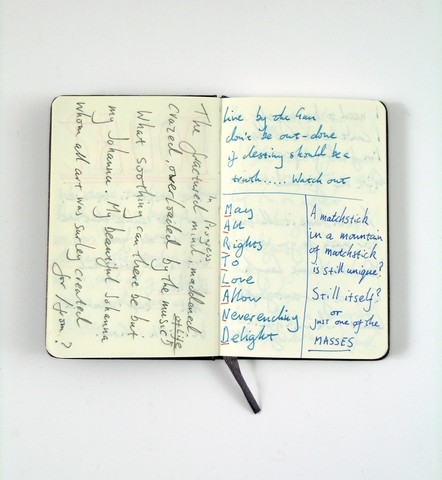 In Progress
The fractured mind, maddened
crazed, overloaded by the music of life
What soothing can there be but
my Johanna. My beautiful Johanna
whom all art was surley created
for
?
Live by the Gun
don't be out-done
if destiny should be a
truth..... Watch out
May
All
Rights
To
Love
Allow
Neverending
Delight
A matchstick
in a mountain
of matchstick
is still unique?
Still itself?
or
just one of the
MASSES